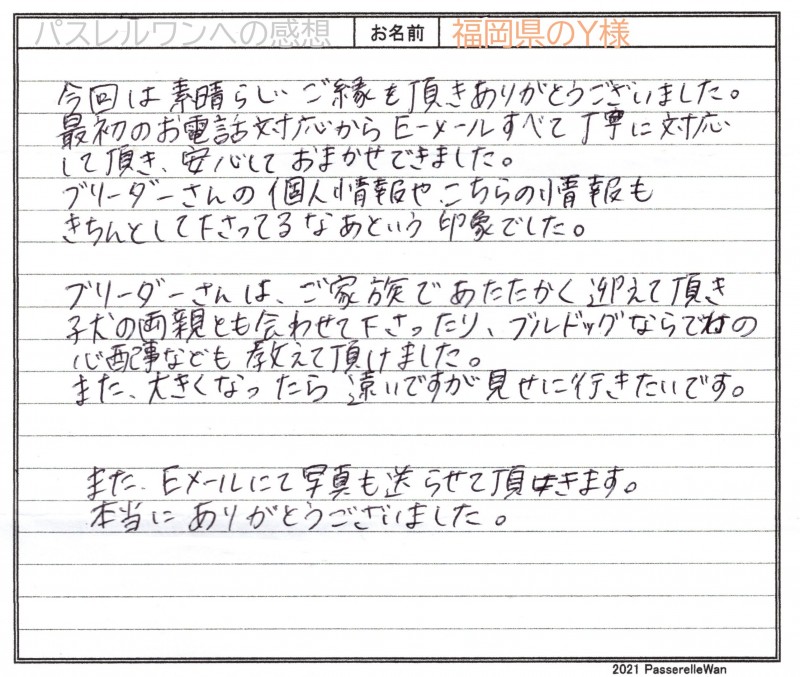 パスレルワンへの感想 お名前 福岡県のY様
今回は素晴らしいご縁を頂きありがとうございました。
最初のお電話対応からE-メールすべて丁寧に対応
して頂き、安心しておまかせできました。
ブリーダーさんの個人情報や、こちらの情報も
きちんとして下さってるなあという印象でした。
ブリーダーさんは、ご家族であたたかく迎えて頂き
子犬の両親とも会わせて下さったり、ブルドッグならではの
心配事なども教えて頂けました。
また、大きくなったら遠いですが見せに行きたいです。
また、Eメールにて写真も送らせて頂きます。
本当にありがとうございました。
2021 PasserelleWan